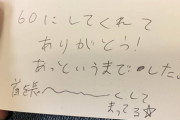 60にしてくれて
ありがとう!
あっというまでした。
くして
まってる☆